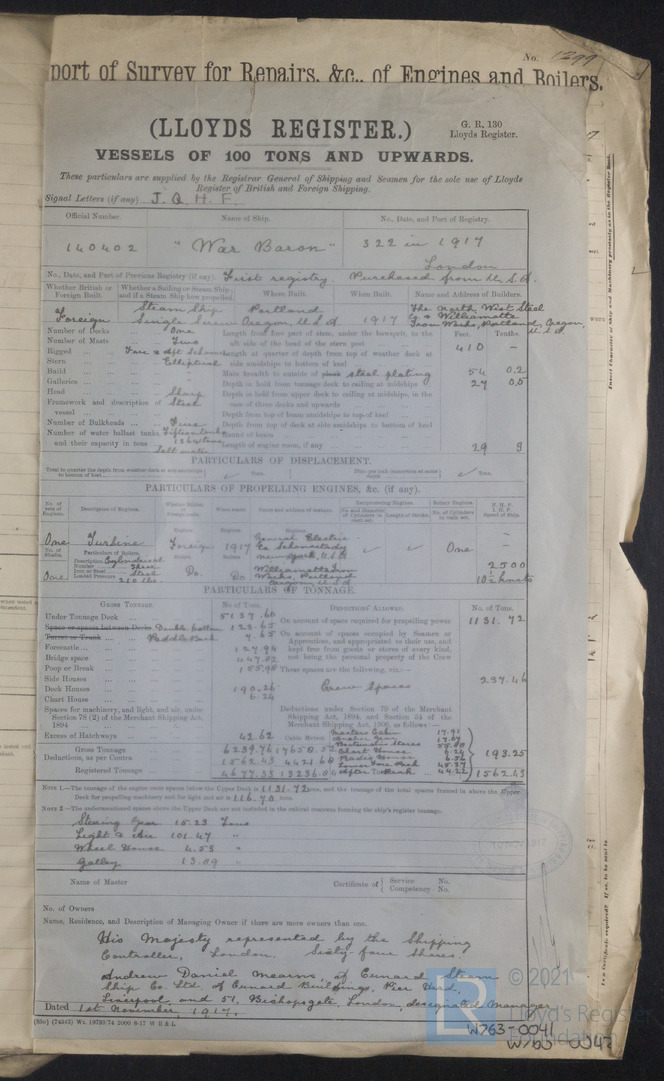 No. 1299
port of Survey for Repairs, &c., of Engines and Boilers.
(LLOYDS REGISTER.)
G. R. 130
Lloyds Register.
VESSELS OF 100 TONS AND UPWARDS.
These particulars are supplied by the Registrar General of Shipping and Seamen for the sole use of Lloyds
Register of British and Foreign Shipping.
Signal Letters (if any) J. Q. H. F.
Official Number. Name of Ship. No., Date, and Port of Registry.
140402 "War Baron" 322 in 1917
London
No., Date, and Port of Previous Registry (if any). First registry. Purchased from U.S.A.
Whether British or Foreign Built. Whether a Sailing or Steam Ship and if a Steam Ship how propelled. Where Built. When Built. Name and Address of Builders.
Foreign Steam Ship Single Screw Portland Oregon, U.S.A 1917 The North West Steel Co & Williamette Iron Works, Portland, Oregon, U.S.A
Number of Decks One Length from fore part of stem, under the bowsprit, to the aft side of the head of the stern post Feet. Tenths.
410 –
Number of Masts Two
Rigged Fore & Aft Schooner Length at quarter of depth from top of weather deck at side amidships to bottom of keel
Stern Elliptical
Build Main breadth to outside of steel plating 54 0.2
Galleries Depth in hold from tonnage deck to ceiling at midships 27 0.5
Head Sharp Depth in hold from upper deck to ceiling at midships, in the case of three decks and upwards
Framework and description of vessel Steel
Depth from top of beam amidships to top of keel
Number of Bulkheads Five Depth from top of deck at side amidships to bottom of keel
Number of water ballast tanks, and their capacity in tons Fifteen tanks 1364 tons Salt water
Round of beam
Length of engine room, if any 29 9
PARTICULARS OF DISPLACEMENT.
Total to quarter the depth from weather deck at side amidships to bottom of keel Tons. Ditto per inch immersion at same depth Tons.
PARTICULARS OF PROPELLING ENGINES, &c. (if any).
No. of sets of Engines. Description of Engines. Whether British or Foreign made. When made. Name and address of makers. Reciprocating Engines. Rotary Engines. N.H.P. I.H.P. Speed of Ship.
No. and Diameter of Cylinders in each set. Length of Stroke. No. of Cylinders in each set.
One Turbine Foreign 1917 General Electric Co Schenectady New York, U.S.A One –
No. of Shafts. Particulars of Boilers.
One Description Cylindrical Number Three Iron or Steel Steel Loaded Pressure 210 lbs Do. Do Williamette Iron Works, Portland Oregon, U.S.A 2500
10½ knots
PARTICULARS OF TONNAGE.
GROSS TONNAGE. No. of Tons. DEDUCTIONS ALLOWED. No. of Tons.
Under Tonnage Deck 5137.60 On account of space required for propelling power 1131.72
Space or spaces between Decks Double bottom 123.65 On account of spaces occupied by Seamen or Apprentices, and appropriated to their use, and kept free from goods or stores of every kind, not being the personal property of the Crew
Turret or Trunk 7.65
Forecastle 127.94
Bridge space 447.82
Poop or Break 155.98 These spaces are the following, viz:— 237.46
Side Houses
Deck Houses 190.26 Crew Spaces
Chart House 6.24
Spaces for machinery, and light, and air, under Section 78 (2) of the Merchant Shipping Act, 1894
Deductions under Section 79 of the Merchant Shipping Act, 1894, and Section 54 of the Merchant Shipping Act, 1906, as follows:—
Excess of Hatchways 42.62 Cubic Metres. Masters Cabin
Boatswains Stores
Chart House 6.24
Radio House 193.25
Gross Tonnage 6239.76 17658.52
Deductions, as per Contra 1562.43 4421.68
Registered Tonnage 4677.33 13236.84 After Peak 44.22 1562.43
NOTE 1.—The tonnage of the engine room spaces below the Upper Deck is 1131.72 tons, and the tonnage of the total spaces framed in above the Upper Deck for propelling machinery and for light and air is 116.70 tons.
NOTE 2.—The undermentioned spaces above the Upper Deck are not included in the cubical contents forming the ship's register tonnage.
Steering Gear 15.23 Tons
Light & Air 101.47 "
Wheel House 4.53 "
Galley 13.89 "
Name of Master Certificate of { Service No. Competency No.
No. of Owners
Name, Residence, and Description of Managing Owner if there are more owners than one.
His Majesty represented by the Shipping
Controller, London. Sixty-four shares.
Andrew Daniel Mearns, of Cunard Steam
Ship Co. Ltd. of Cunard Buildings, Pier Head,
Liverpool, and 51, Bishopsgate, London, designated manager
Dated 1st November, 1917.
© 2021
LR Lloyd's Register Foundation
W763-0041